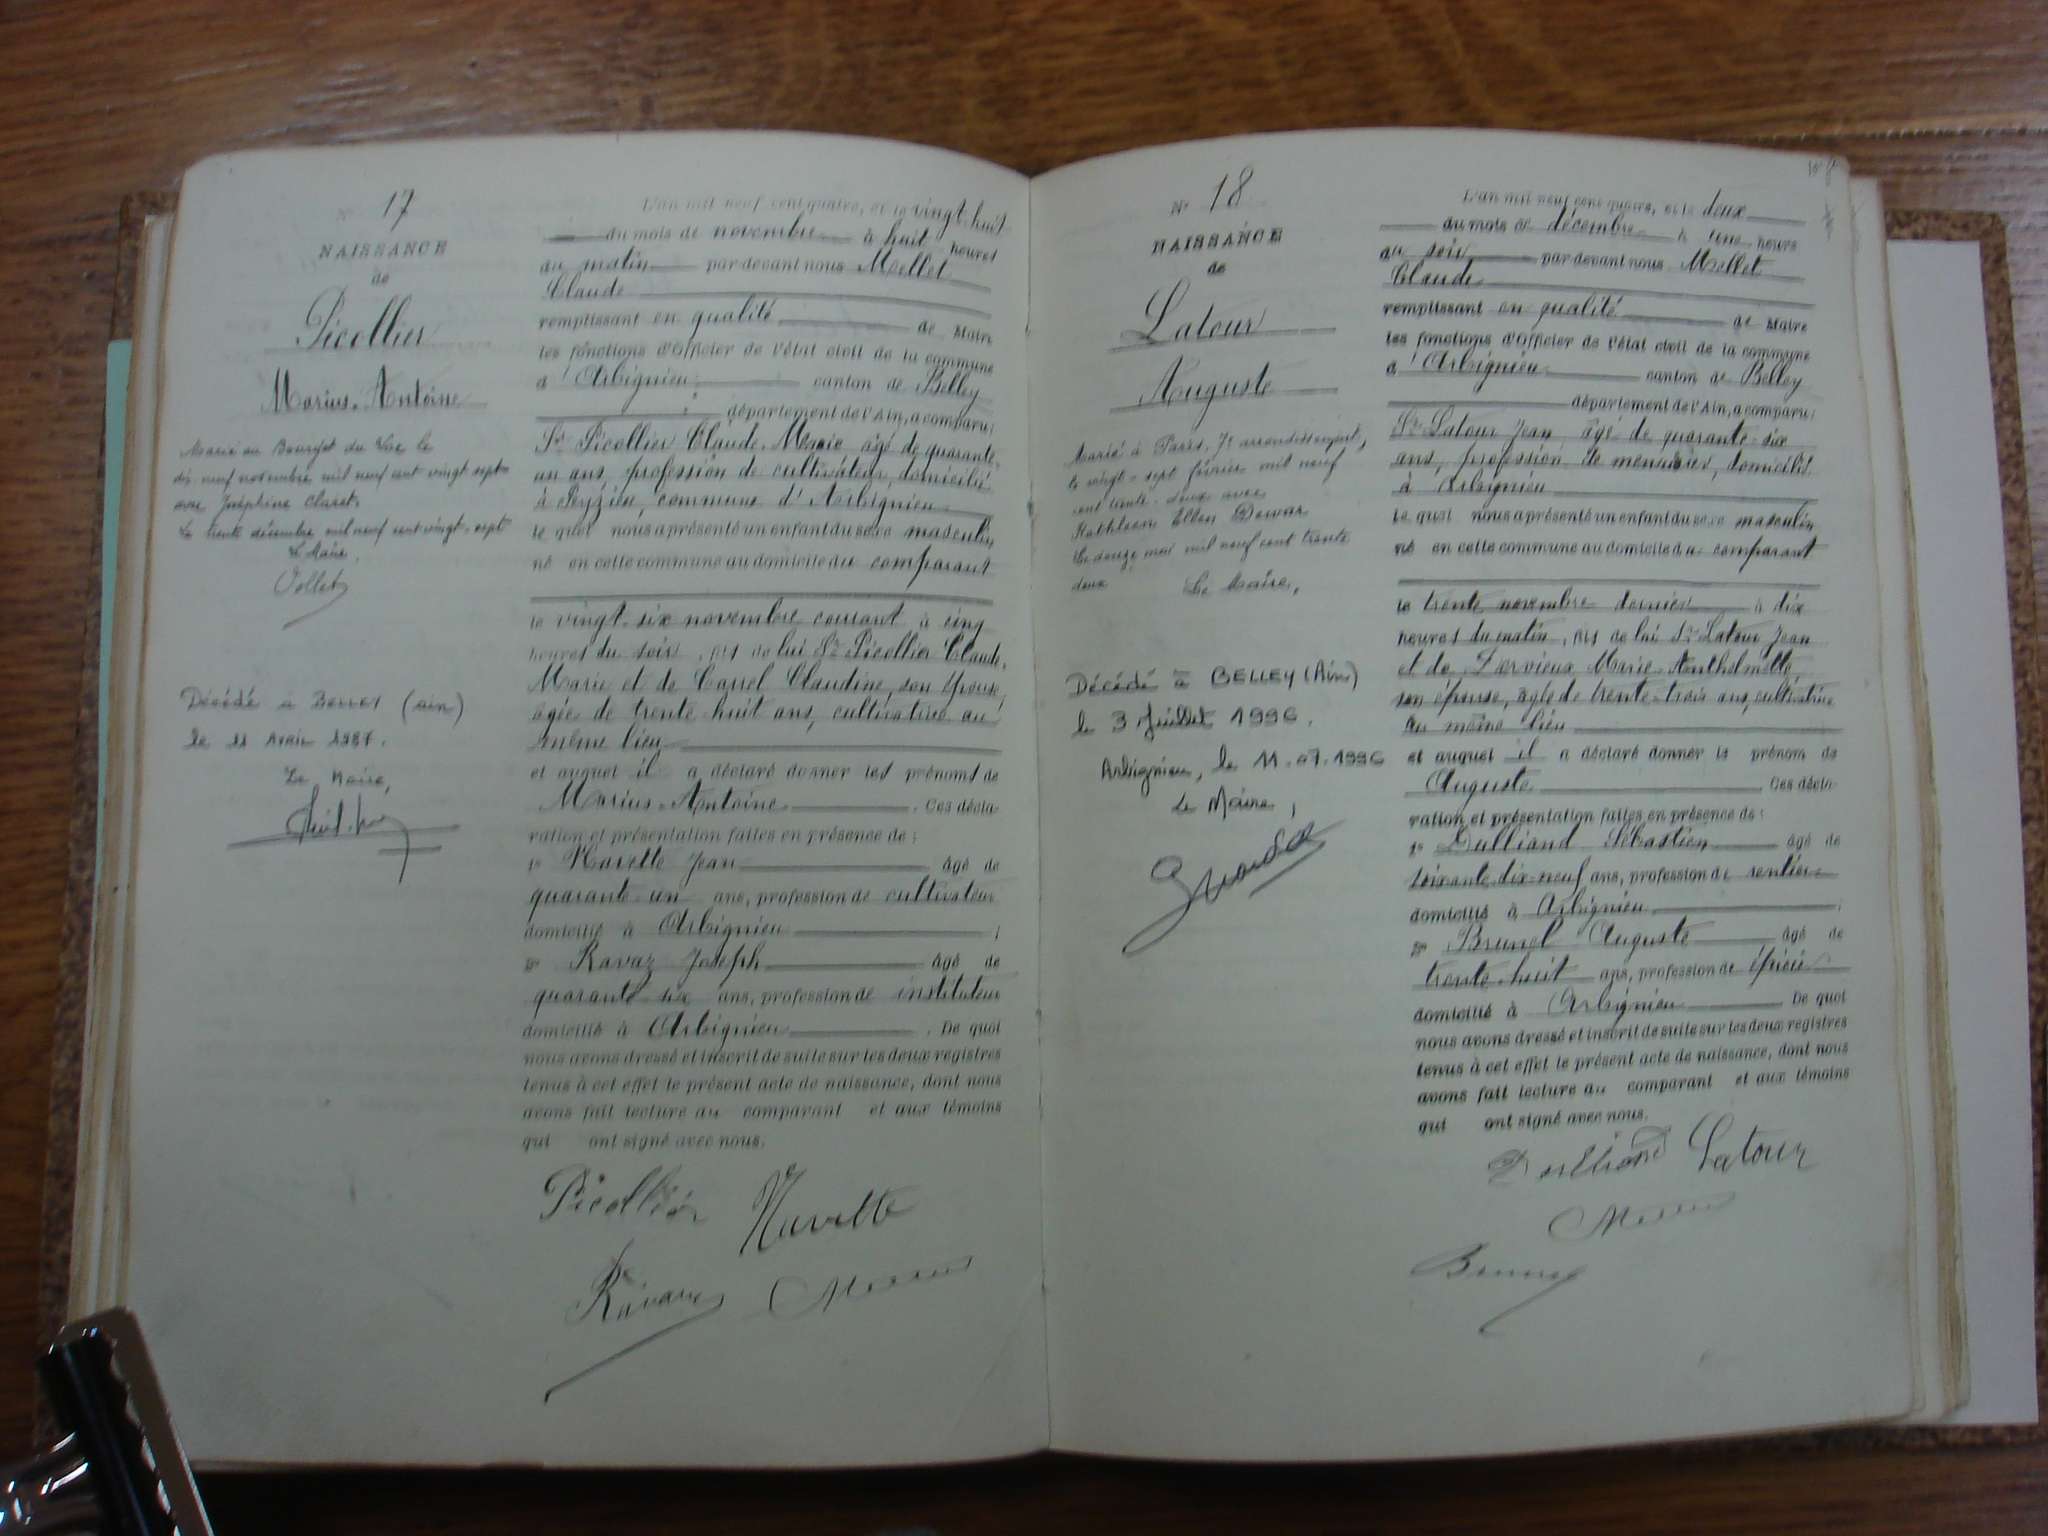 N° 17
NAISSANCE
de
Picollier
Marius-Antoine
Marié au Bourget du Lac le
dix neuf novembre mil neuf cent vingt sept
avec Joséphine Claret.
Le trente décembre mil neuf cent vingt-sept
Le Maire
Décédé à BELLEY (Ain)
le 11 Avril 1987.
Le Maire,
L'an mil neuf cent quatre, et le vingt-huit
du mois de novembre à huit heures
du matin par devant nous Mollet
Claude
remplissant en qualité de Maire
les fonctions d'Officier de l'état civil de la commune
d'Arbignieu canton de Belley
département de l'Ain, a comparu:
Sr Picollier Claude-Marie âgé de quarante-
un ans, profession de cultivateur, domicilié
à Peyzieu, commune d'Arbignieu
le quel nous a présenté un enfant du sexe masculin
né en cette commune au domicile du comparant
le vingt-six novembre courant à cinq
heures du soir, fils de lui Sr Picollier Claude-
Marie et de Carrel Claudine, son épouse,
âgée de trente-huit ans, cultivatrice au
même lieu
et auquel il a déclaré donner les prénoms de
Marius-Antoine. Ces décla-
ration et présentation faites en présence de:
1° Navette Jean âgé de
quarante-un ans, profession de cultivateur
domicilié à Arbignieu;
2° Ravaz Joseph âgé de
quarante six ans, profession de instituteur
domicilié à Arbignieu. De quoi
nous avons dressé et inscrit de suite sur les deux registres
tenus à cet effet le présent acte de naissance, dont nous
avons fait lecture au comparant et aux témoins
qui ont signé avec nous.
Picollier Navette
Ravaz
N° 18
NAISSANCE
de
Latour
Auguste
Marié à Paris, 7e arrondissement,
le vingt-sept février mil neuf
cent trente-deux avec
Kathleen Ellen Dewar
Le douze mai mil neuf cent trente
deux Le Maire,
Décédé à BELLEY (Ain)
le 3 Juillet 1996.
Arbignieu, le 11.07.1996
Le Maire,
L'an mil neuf cent quatre, et le deux
du mois de décembre à une heure
du soir par devant nous Mollet
Claude
remplissant en qualité de Maire
les fonctions d'Officier de l'état civil de la commune
d'Arbignieu canton de Belley
département de l'Ain, a comparu:
Sr Latour Jean, âgé de quarante-six
ans, profession de menuisier, domicilié
à Arbignieu
le quel nous a présenté un enfant du sexe masculin
né en cette commune au domicile du comparant
le trente novembre dernier à dix
heures du matin, fils de lui Sr Latour Jean
et de Dervieux Marie-Anthelmette,
son épouse, âgée de trente-trois ans, cultivatrice
au même lieu
et auquel il a déclaré donner le prénom de
Auguste Ces décla-
ration et présentation faites en présence de:
1° Dulliand Sébastien âgé de
soixante-dix-neuf ans, profession de rentier
domicilié à Arbignieu;
2° Brunel Auguste âgé de
trente-huit ans, profession de épicier
domicilié à Arbignieu De quoi
nous avons dressé et inscrit de suite sur les deux registres
tenus à cet effet le présent acte de naissance, dont nous
avons fait lecture au comparant et aux témoins
qui ont signé avec nous.
Dulliand Latour
Brunel